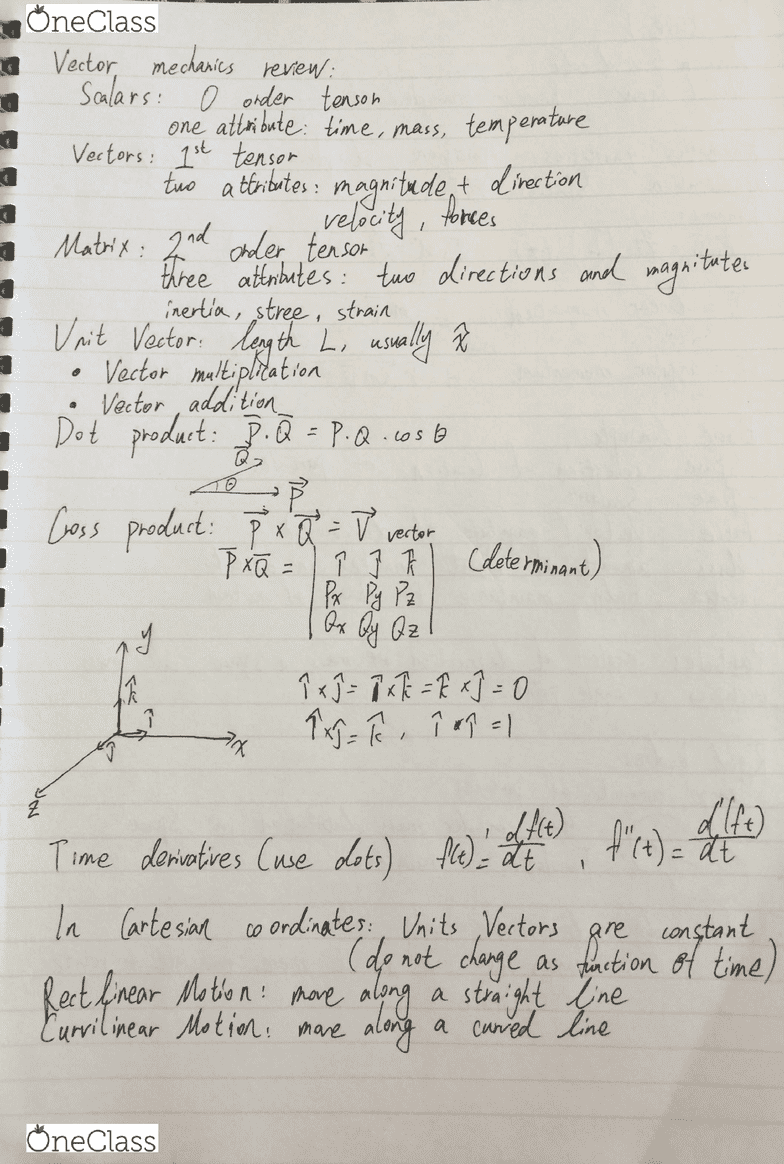 OneClass
Vector mechanics review:
Scalars: 0 order tensor
one attribute: time, mass, temperature
Vectors: 1st tensor
two attributes: magnitude + direction
velocity, forces
Matrix: 2nd order tensor
three attributes: two directions and magnitutes
inertia, stree, strain
Unit Vector: length L, usually x̂
• Vector multiplication
• Vector addition
Dot product: P̅·Q̅ = P·Q·cos θ
Q⃗
θ
P⃗
Cross product: P⃗ x Q⃗ = V⃗ vector
P̅xQ̅ = | î ĵ k̂ | (determinant)
Px Py Pz
Qx Qy Qz
y
k̂
î
ĵ
x
z
î x ĵ = î x k̂ = k̂ x ĵ = 0
î x ĵ = k̂, î · î = 1
Time derivatives (use dots) f(t)' = df(t)/dt, f''(t) = d'(ft)/dt
In Cartesian coordinates: Units Vectors are constant
(do not change as function of time)
Rectlinear Motion: move along a straight line
Curvilinear Motion: move along a curved line
OneClass